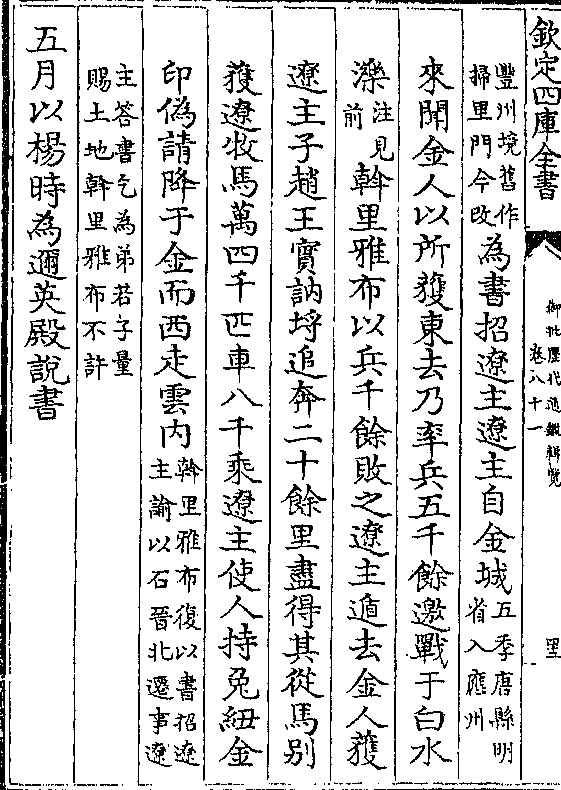 欽定四庫全書
御批歷代通鑑輯覽
卷八十一
豐州境舊作
掃里門今改
為書招遼主遼主自金城
五季唐縣明
省入應州
來聞金人以所獲東去乃率兵五千餘邀戰于白水
濼
注見
前
斡里雅布以兵千餘敗之遼主遁去金人獲
遼主子趙王實訥埒追奔二十餘里盡得其從馬别
獲遼牧馬萬四千匹車八千乘遼主使人持兔紐金
印偽請降于金而西走雲内
斡里雅布復以書招遼
主諭以石晉北遷事遼
主答書乞為弟若子量
賜土地斡里雅布不許
五月以楊時為邇英殿說書